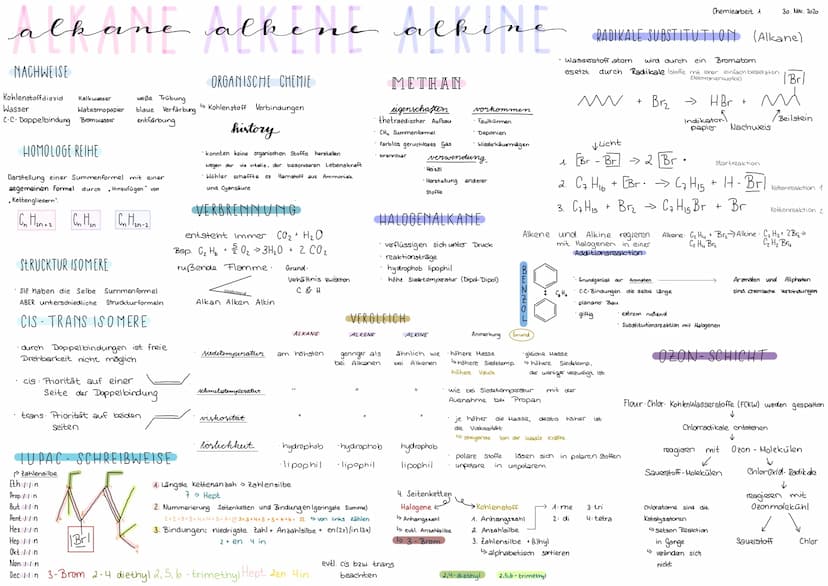 Chemiearbeit 1 30. Nov. 2020
ALKANE ALKENE ALKINE
alkane alkene alkine
NACHWEISE
Kohlenstoffdioxid Kalkwasser weiße Trübung
Wasser Watesmopapier blaue Verfärbung
C-C-Doppelbindung Bromwasser entfärbung
HOMOLOGE REIHE
Darstellung einer Summenformel mit einer
allgemeinen Formel durch "Hinzufügen" von
"Kettengliedern".
CnH2n+2 CnH2n CnH2n-2
STRUCKTUR ISOMERE
· sie haben die selbe Summenformel
ABER unterschiedliche Strukturformeln
CIS-TRANS ISOMERE
· durch Doppelbindungen ist freie
Drehbarkeit nicht möglich
· cis: Priorität auf einer
Seite der Doppelbindung
· trans: Priorität auf beiden
seiten
ORGANISCHE CHEMIE
↳ Kohlenstoff Verbindungen
history
· konnten keine organischen Stoffe herstellen
wegen der vis vitalis, der besonderen Lebenskraft
· Wöhler schaffte es Harnstoff aus Ammoniak
und Cyansäure
VERBRENNUNG
entsteht immer CO2 + H2O
Bsp. C2H6 + 5/2 O2 → 3H2O + 2 CO2
rußende Flamme: Grund:
Verhältnis zwischen
C & H
Alkan Alken Alkin
METHAN
eigenschaften
· thetraedischer Aufbau
· CH4 Summenformel
· farblos geruchloses Gas
· brennbar
vorkommen
· Faultürmen
· Deponien
· Wiederkäuermägen
verwendung
· Heizöl
· Herstellung anderer
Stoffe
HALOGENALKANE
· verflüssigen sich unter Druck
· reaktionsträge
· hydrophob lipophil
· höhe Siedetemperatur (Dipol-Dipol)
RADIKALE SUBSTITUTION (Alkane)
· Wasserstoffatom wird durch ein Bromatom
esetzt durch Radikale (Stoffe mit einer einfach besetzten
+ Br2 → HBr +
|Br|
Indikator
papier Nachweis Beilstein
Licht
1. |Br - Br| → 2 |Br · Startreaktion
2. C7H16 + |Br · → C7H15 + H - Br| Kettenreaktion 1
3. C7H15 + Br2 → C7H15Br + Br Kettenreaktion 2
Alkene und Alkine regieren
mit Halogenen in einer
Additionsreaktion
BENZOL
C6H6
· Grundgerüst der Aromaten → Aromaten und Aliphaten
· C-C-Bindungen die selbe länge sind chemische Verbindungen
· planarer Bau
· giftig
· extrem rußend
· Substitutionsreaktion mit Halogenen
VERGLEICH
ALKANE ALKENE ALKINE Anmerkung Grund
siedetemperatur am höchsten geringer als bei Alkanen ähnlich wie bei Alkenen
· höhere Masse
↳ höhere Siedetemp.
· gleiche Masse
↳ höhere Siedetemp.
der weniger verzweigt ist
schmelztemperatur " " " · wie bei Siedetemperatur mit der
Ausnahme bei Propan
viskosität " " " · je höher die Masse, desto höher ist
die Viskosität
löslichkeit hydrophob hydrophob hydrophob
lipophil lipophil lipophil
· polare Stoffe lösen sich in polaren Stoffen
· unpolare in unpolarem
OZON-SCHICHT
Flour-Chlor-Kohlenwasserstoffe (FCKW) werden gespalten
Chlorradikale entstehen
reagieren mit Ozon-Molekülen
Sauerstoff-Molekülen Chlor(II)id-Radikale
reagieren mit
Ozonmolekühl
Sauerstoff Chlor
Chloratome sind die
Katalysatoren
↳ setzen Reaktion
in Gange
↳ verändern sich
nicht
IUPAC-SCHREIBWEISE
Zahlensilbe
Eth
Prop
But
Pent
Hex
Hep
Okt
Non
Dec
|Br|
1. Längste Kettenanzahl → Zahlensilbe
7 → Hept
2. Nummerierung Seitenketten und Bindungen (geringste Summe)
↳ von links zählen
3. Bindungen: niedrigste Zahl + Anzahlsilbe + en(2x)/in(3x)
2 + en 4 in
4. Seitenketten
Halogene
↳ Anfangszahl
↳ evtl. Anzahlsilbe
↳ 3-Brom
Kohlenstoff
1. Anfangszahl
2. Anzahlsilbe
3. Zahlensilbe + (th)yl
↳ alphabetisch sortieren
1: mo 3: tri
2: di 4: tetra
3-Brom 2-4 diethyl 2,5,6-trimethyl Hept 2en 4in
evtl. cis bzw. trans
beachten
2,4-diethyl 2,5,6-trimethyl